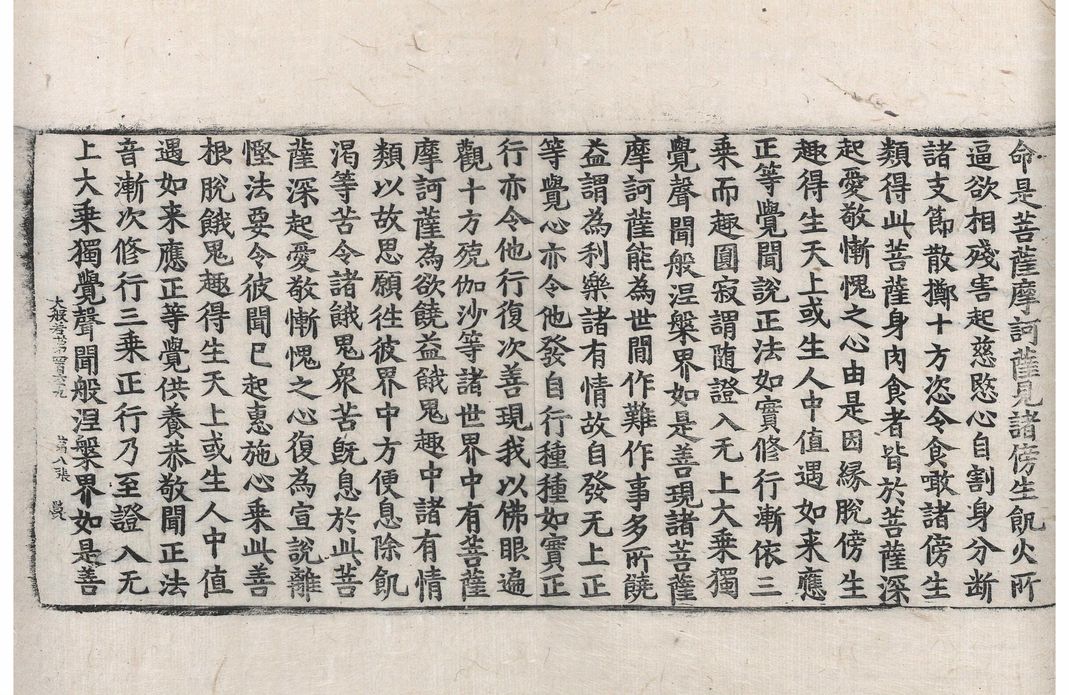 命是菩薩摩訶薩見諸傍生飢火所
逼欲相殘害起慈愍心自割身分断
諸支節散擲十方恣令食噉諸傍生
類得此菩薩身肉食者皆於菩薩深
起愛敬慚愧之心由是因縁脫傍生
趣得生天上或生人中值遇如来應
正等覺聞說正法如實修行漸依三
乗而趣圓寂謂随證入无上大乗獨
覺聲聞般涅槃界如是善現諸菩薩
摩訶薩能為世間作難作事多所饒
益謂為利樂諸有情故自發无上正
等覺心亦令他發自行種種如實正
行亦令他行復次善現我以佛眼遍
觀十方殑伽沙等諸世界中有菩薩
摩訶薩為欲饒益餓鬼趣中諸有情
類以故思願往彼界中方便息除飢
渴等苦令諸餓鬼衆苦旣息於此菩
薩深起愛敬慚愧之心復為宣說離
慳法要令彼聞已起惠施心乗此善
根脫餓鬼趣得生天上或生人中值
遇如来應正等覺供養恭敬聞正法
音漸次修行三乗正行乃至證入无
上大乗獨覺聲聞般涅槃界如是善
大般若第 第八張